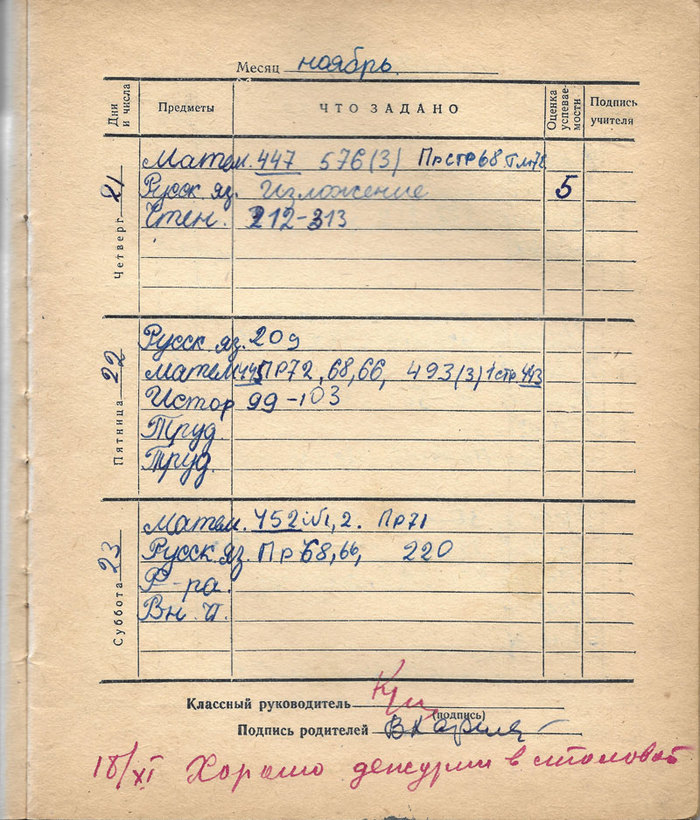 Месяц ноябрь
Дни и числа Предметы ЧТО ЗАДАНО Оценка успеваемости Подпись учителя
Четверг 21
Матем. 447 576(3) Пр стр 68
Русск. яз. Изложение 5
Чтен. 212-313
Пятница 22
Русск. яз. 209
Матем 445 ПР72, 68, 66, 493(3) 1 стр. 443
Истор 99-103
Труд
Труд.
Суббота 23
Матем. 452 №1, 2. Пр71
Русск. яз. Пр 68, 66, 220
Р-ра.
Вн. ч.
Классный руководитель
(подпись)
Подпись родителей
18/XI Хорошо дежурил в столовой